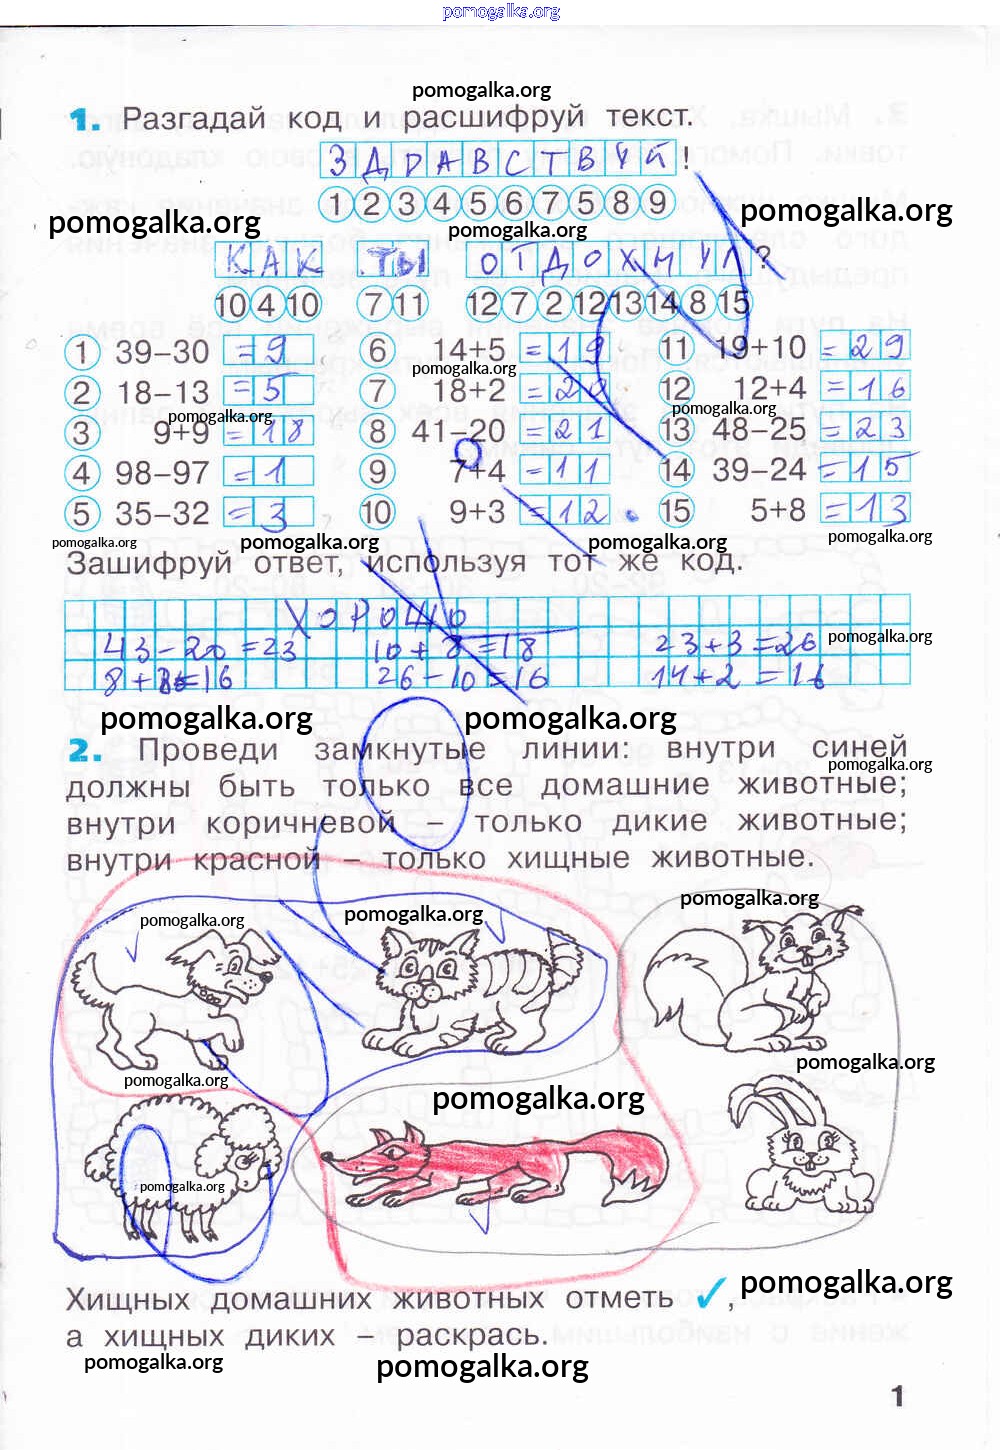 pomogalka.org
pomogalka.org
1. Разгадай код и расшифруй текст.
ЗДРАВСТВУЙ!
1 2 3 4 5 6 7 5 8 9
pomogalka.org pomogalka.org pomogalka.org
КАК ТЫ ОТДОХНУЛ?
10 4 10 7 11 12 7 2 12 13 14 8 15
1 39–30 =9 6 14+5 =19 11 19+10 =29
pomogalka.org
2 18–13 =5 7 18+2 =20 12 12+4 =16
pomogalka.org pomogalka.org
3 9+9 =18 8 41–20 =21 13 48–25 =23
4 98–97 =1 9 7+4 =11 14 39–24 =15
5 35–32 =3 10 9+3 =12 15 5+8 =13
pomogalka.org pomogalka.org pomogalka.org pomogalka.org
Зашифруй ответ, используя тот же код.
ХОРОШО
43–20=23 10+8=18 23+3=26 pomogalka.org
8+8=16 26–10=16 14+2=16
pomogalka.org pomogalka.org
2. Проведи замкнутые линии: внутри синей
pomogalka.org
должны быть только все домашние животные;
внутри коричневой – только дикие животные;
внутри красной – только хищные животные.
pomogalka.org pomogalka.org pomogalka.org
pomogalka.org pomogalka.org
pomogalka.org
pomogalka.org
Хищных домашних животных отметь ✓, pomogalka.org
а хищных диких – раскрась.
pomogalka.org pomogalka.org
1